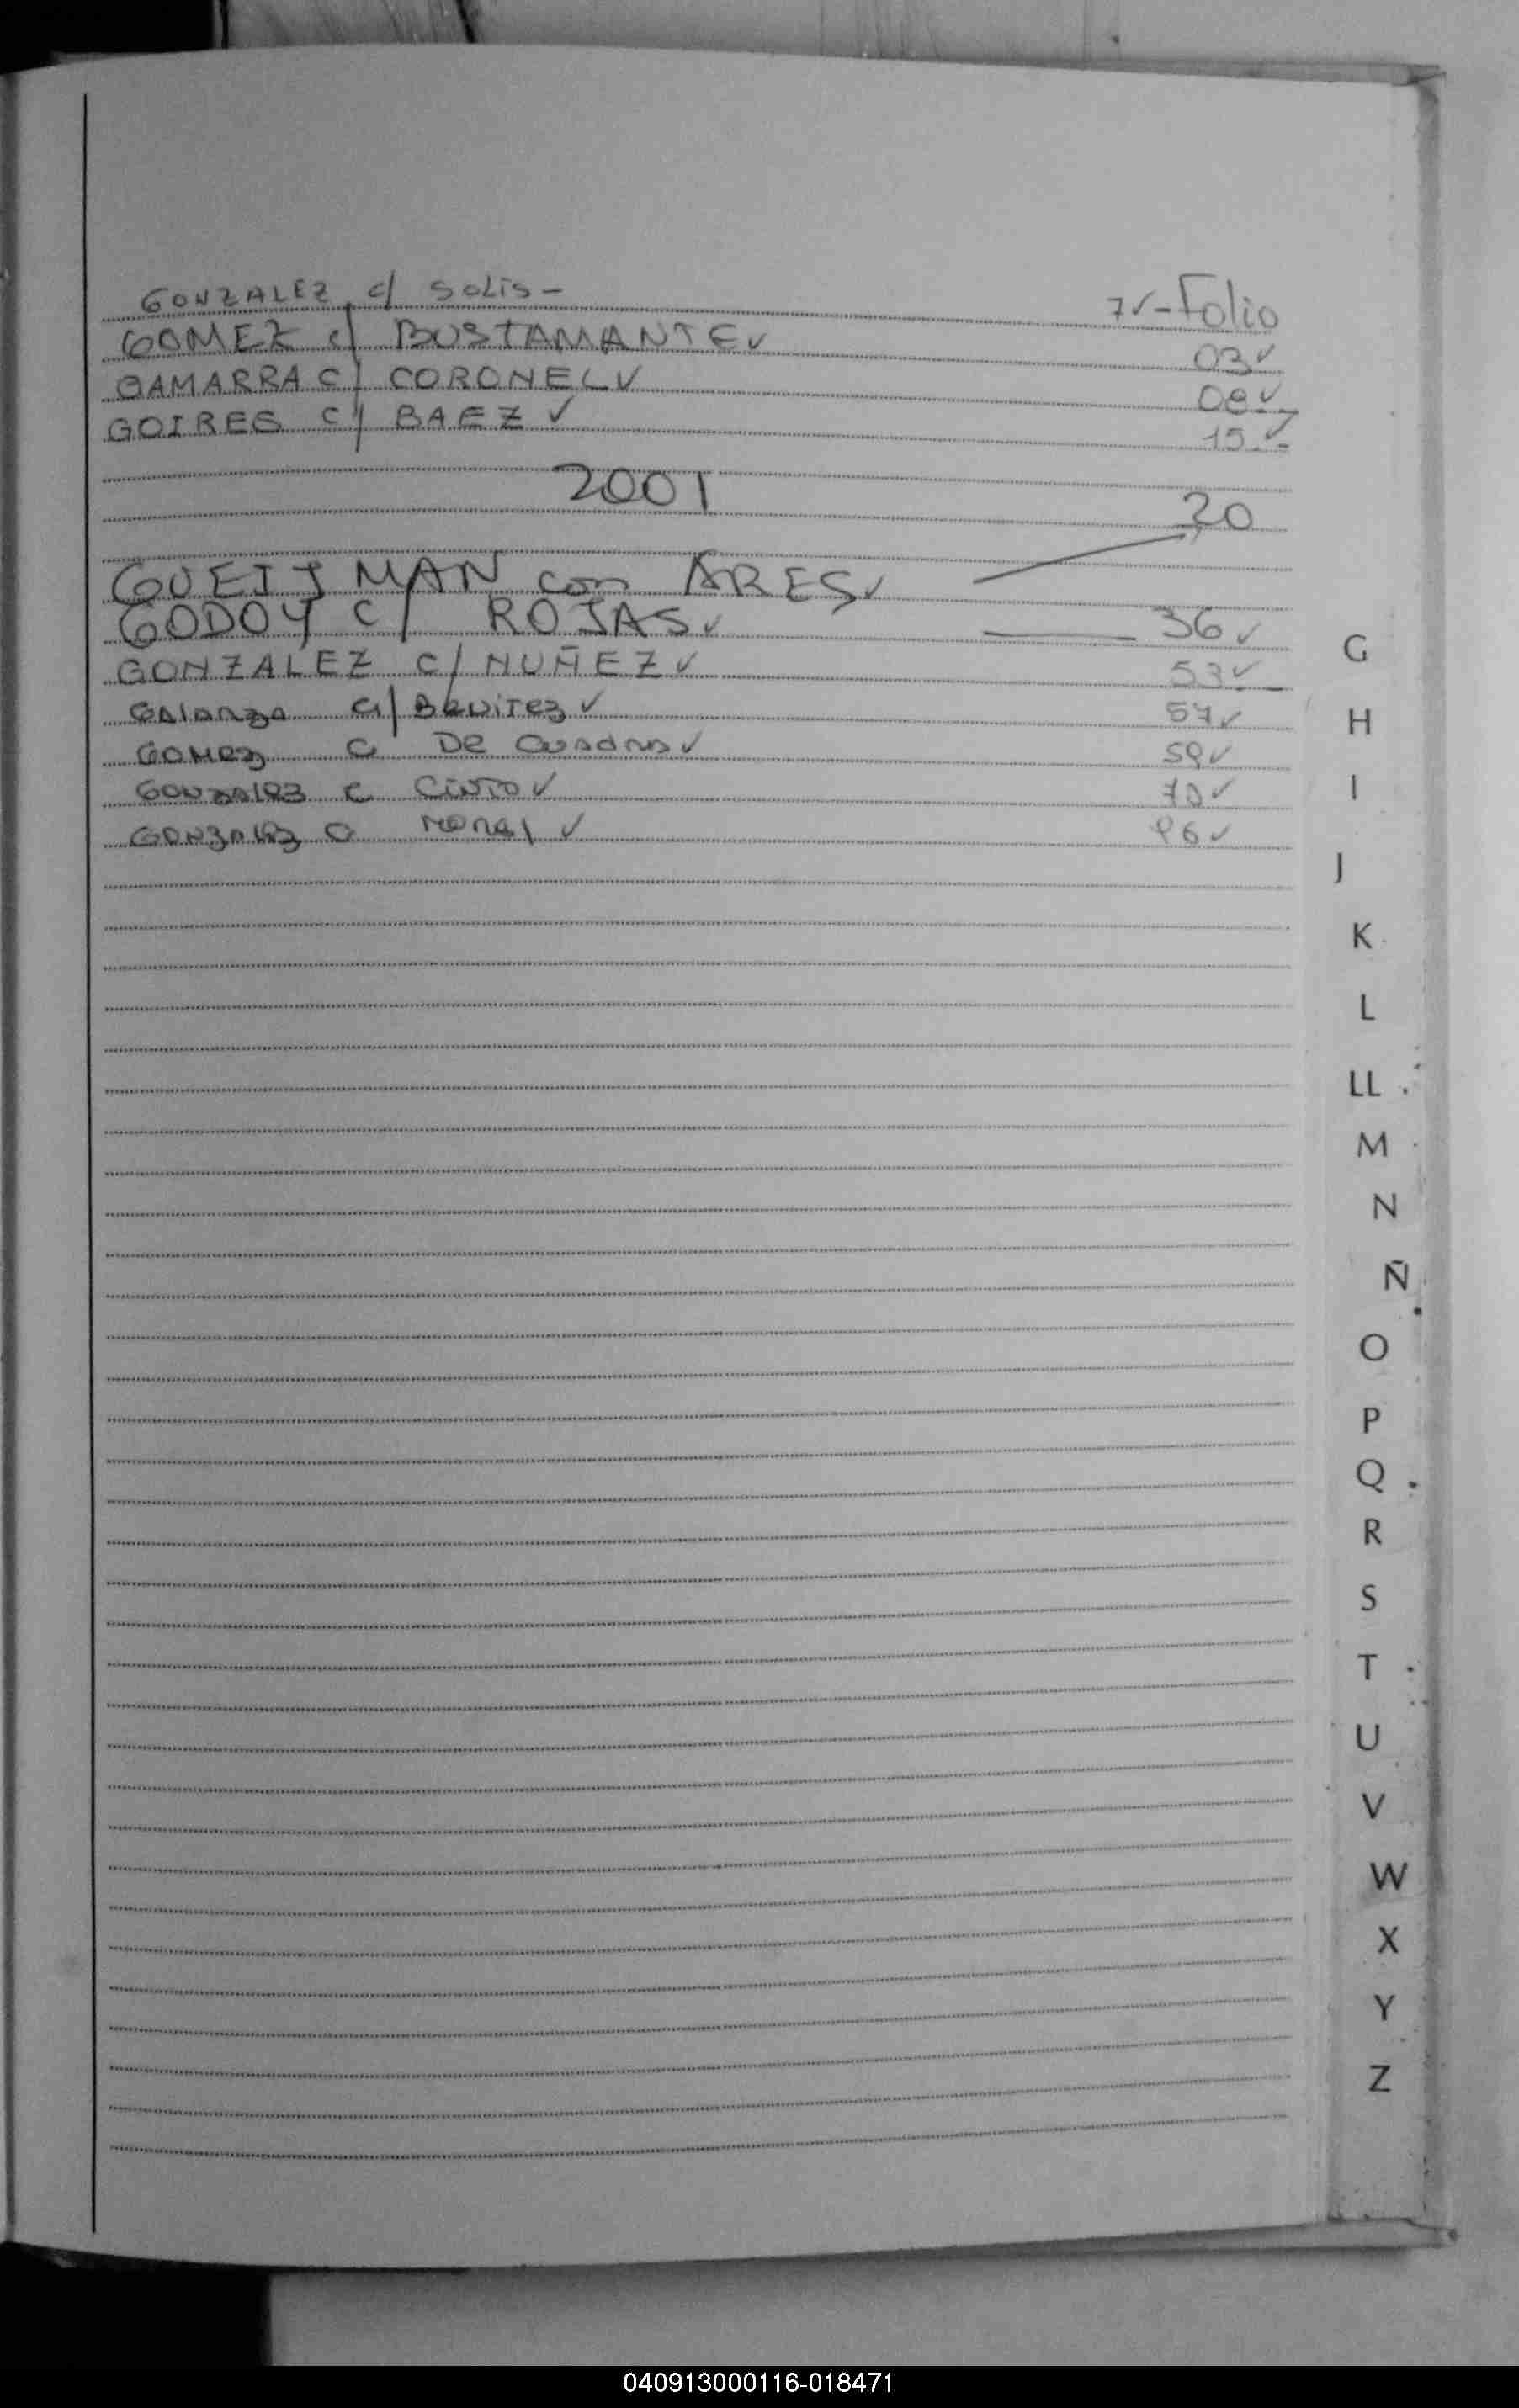 GONZALEZ c/ SOLIS - 7✓ - Folio
GOMEZ c/ BUSTAMANTE✓ 03✓
GAMARRA C/ CORONEL✓ 08✓
GOIRES C/ BAEZ ✓ 15✓
2001
20
GUEIJMAN con ARES✓
GODOY C/ ROJAS✓ 36✓
GONZALEZ C/ NUÑEZ✓ 53✓
GALARZA C/ BENITEZ✓ 57✓
GOMEZ C De Cuadros✓ 59✓
GONZALEZ C CINTO✓ 70✓
GONZALEZ C ✓ 96✓
G
H
I
J
K
L
LL
M
N
Ñ
O
P
Q
R
S
T
U
V
W
X
Y
Z
040913000116-018471